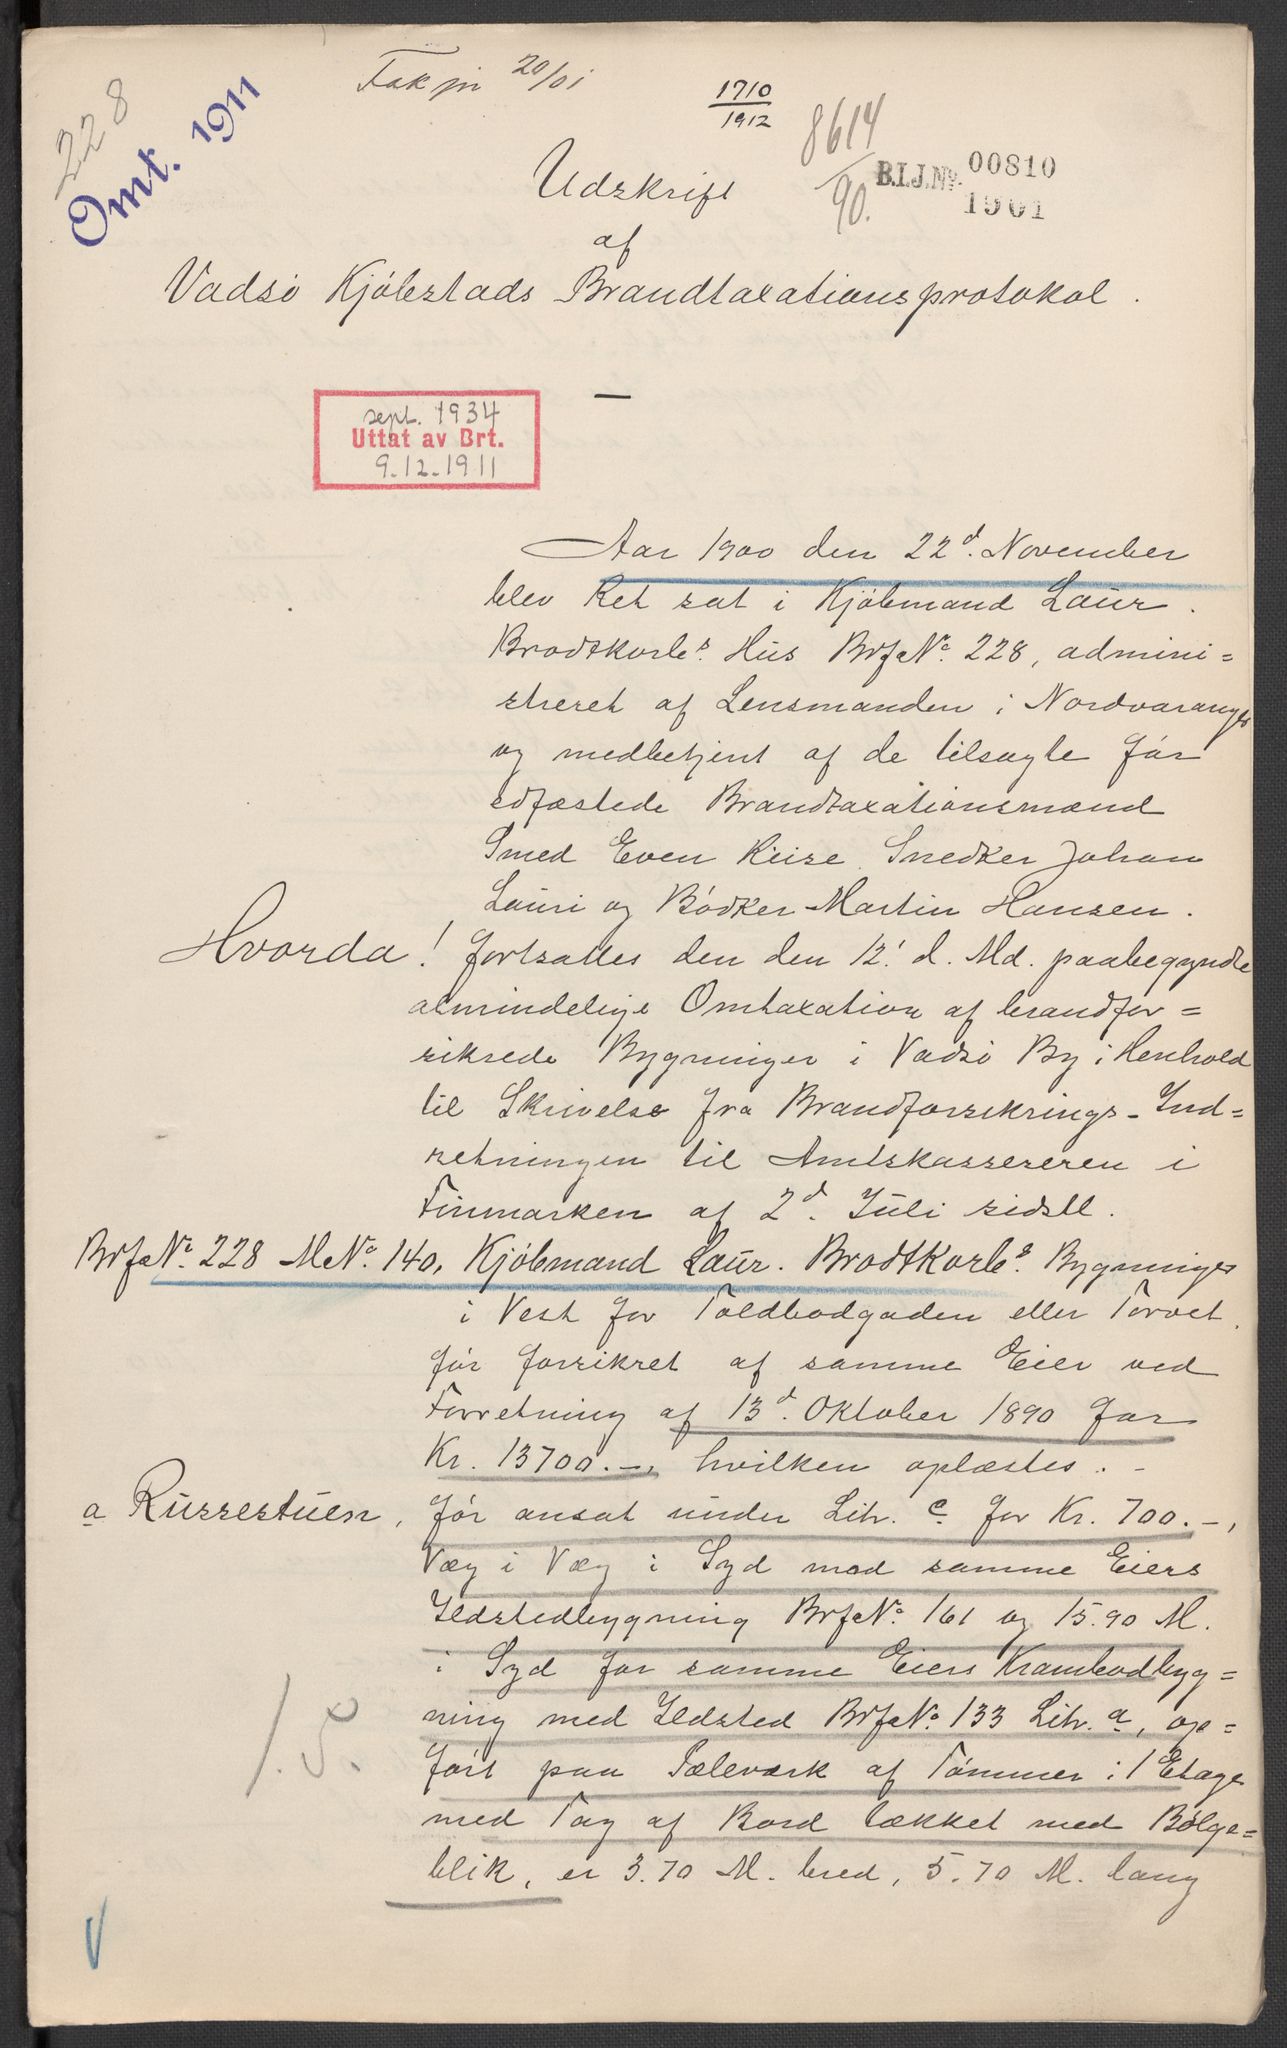 228
Omt. 1911
20/01
1710
1912
8614
90.
B.I.J.No. 00810
1901
Udskrift
af
Vadsö Kjöbstads Brandtaxationsprotokol.
—
sept. 1934
Uttat av Brt.
9.12.1911
Aar 1900 den 22d. November
blev Ret sat i Kjöbmand Laur.
Brodtkorbs. Hus BrfNo. 228, admini=
streret af Lensmanden i Nordvaranger
og medbetjent af de tilsagte för
edfæstede Brandtaxationsmænd
Smed Even Riise, Snedker Johan
Lauri og Bödker Martin Hansen.
Hvorda! fortsattes den den 12. d. Md. paabegyndte
almindelige Omtaxation af brandfor=
sikrede Bygninger i Vadsö By i Henhold
til Skrivelse fra Brandforsikrings-Ind=
retningen til Amtskassereren i
Finmarken af 2d. Juli sidstl.
BrfNo. 228 MNo. 140, Kjöbmand Laur. Brodtkorbs. Bygninger
i Vest for Toldbodgaden eller Torvet,
för forsikret af samme Eier ved
Forretning af 13d. Oktober 1890 for
Kr. 13700.-, hvilken oplæstes. -
a Russestuen, för ansat under Litr. c for Kr. 700.-,
Væg i Væg i Syd med samme Eiers
Ildstedbygning BrfNo. 161 og 15.90 M.
i Syd for samme Eiers Krambodbyg=
ning med Ildsted BrfNo. 133 Litr. a, op=
fört paa Pæleværk af Tömmer i 1 Etage
med Tag af Bord tækket med Bölge=
blik, er 3.70 M. bred, 5.70 M. lang
V